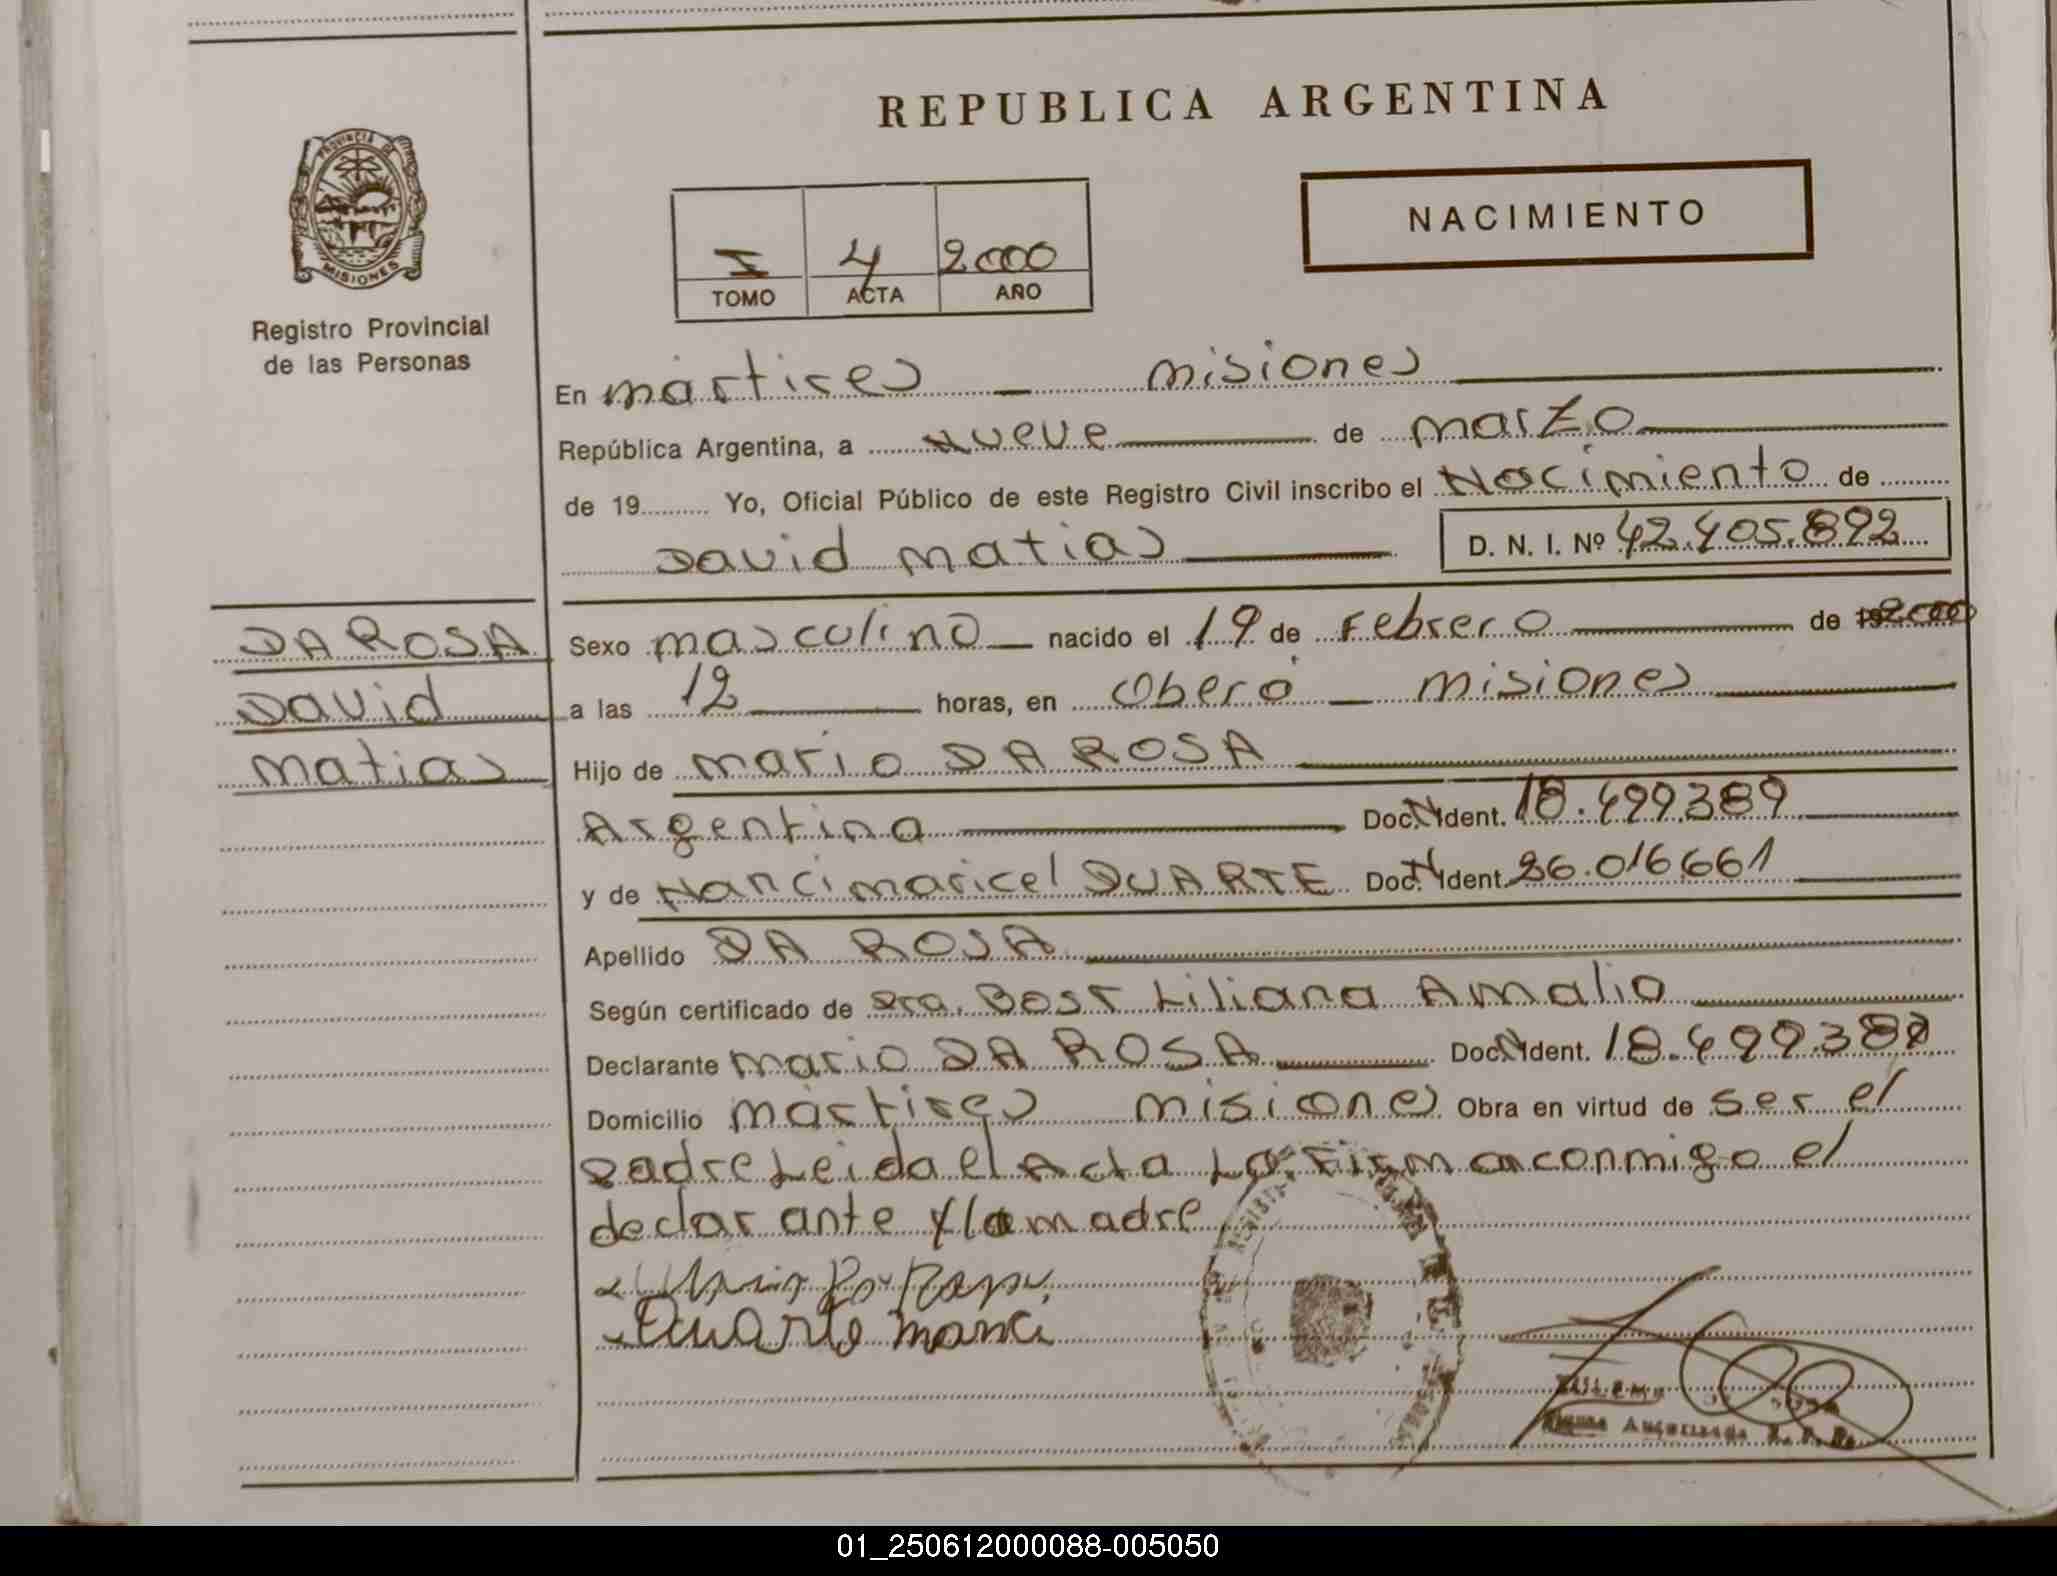 REPUBLICA ARGENTINA
PROVINCIA DE
MISIONES
Registro Provincial
de las Personas
NACIMIENTO
I 4 2000
TOMO ACTA AÑO
En martires misiones
República Argentina, a nueve de marzo
de 19 Yo, Oficial Público de este Registro Civil inscribo el Nacimiento de
David matias D. N. I. Nº 42.405.892
DA ROSA
David
matias
Sexo masculino nacido el 19 de Febrero de 2000
a las 12 horas, en Oberá misiones
Hijo de mario DA ROSA
Argentina Doc. N Ident. 18.499.389
y de Nanci maricel DUARTE Doc. N Ident. 26.016.661
Apellido DA ROSA
Según certificado de Dra. Liliana Amalia
Declarante mario DA ROSA Doc. N Ident. 18.499.389
Domicilio martires misiones Obra en virtud de ser el
padre Leida el Acta La Firma conmigo el
declarante y la madre
Duarte
Autorizada
01_250612000088-005050